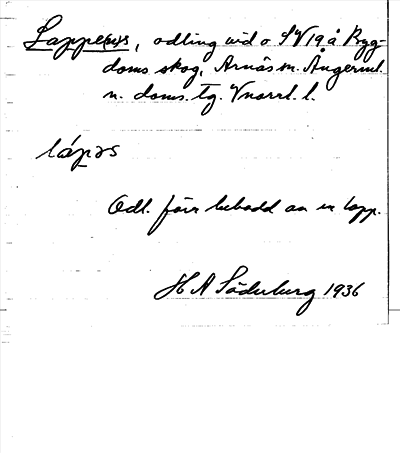 Lappens, odling vid o SV 19 å Byg-
doms skog, Arnäs sn. Ångerml.
n. doms. tg. Vnorrl. l.
lápəs
Odl. förr bebodd av en lapp.
H A Söderberg 1936